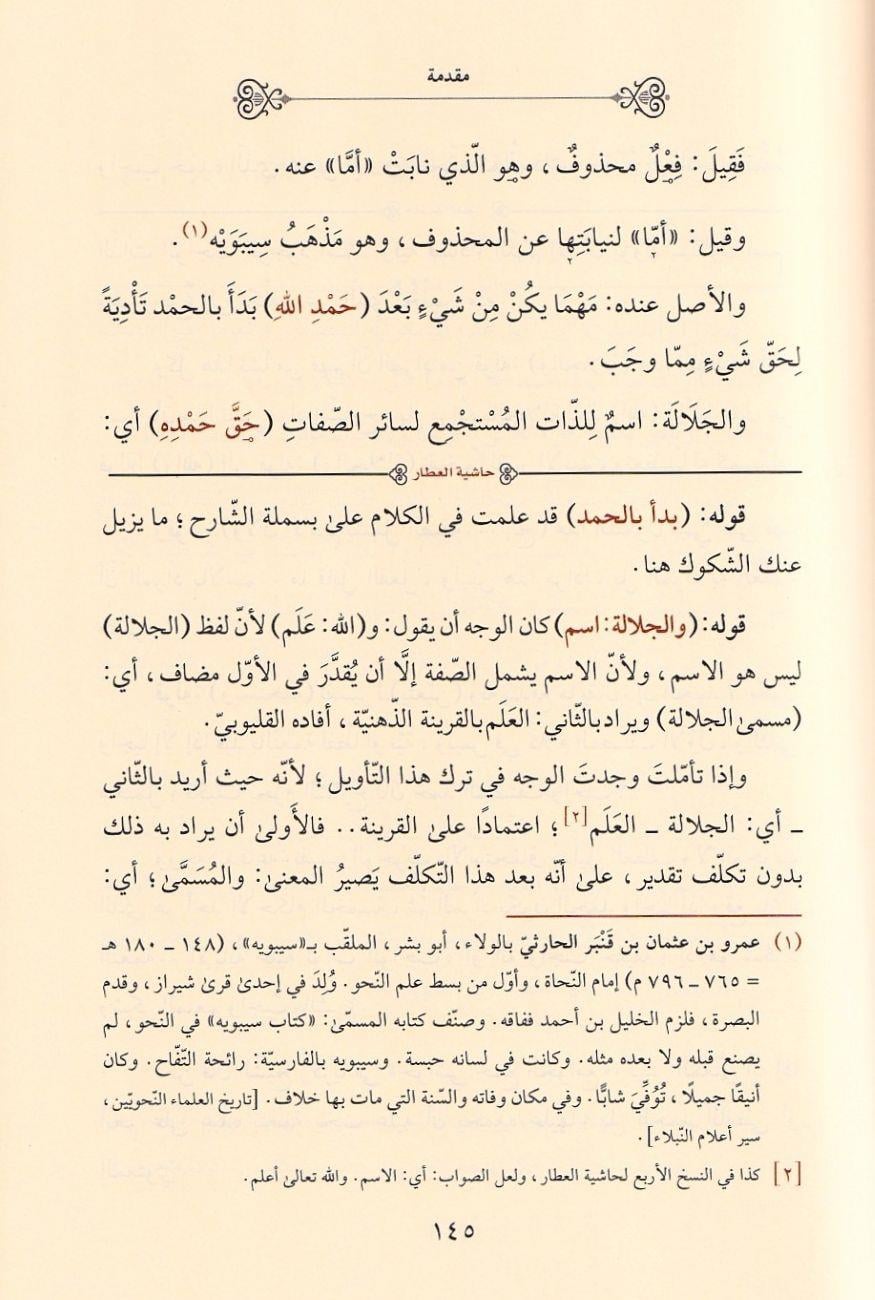 مقدمة
فَقِيلَ: فِعْلٌ محذوفٌ، وهو الّذي نابَتْ «أمَّا» عنه.
وقيل: «أمّا» لنيابَتِها عن المحذوف، وهو مَذْهَبُ سِيبَوَيْه(١).
والأصل عنده: مَهْمَا يكُنْ مِنْ شَيْءٍ بَعْدَ (حَمْدِ اللهِ) بَدَأَ بالحمْد تَأْدِيَةً
لِحَقّ شَيْءٍ مِمّا وجَبَ.
والجَلَالَة: اسمٌ لِلذّات المُسْتجْمِع لسائر الصّفاتِ (حَقَّ حَمْدِهِ) أي:
حاشية العطار
قوله: (بدأ بالحمد) قد علمت في الكلام علىٰ بسملة الشّارح؛ ما يزيل
عنك الشّكوك هنا.
قوله: (والجلالة: اسم) كان الوجه أن يقول: و(الله: عَلَم) لأنّ لفظ (الجلالة)
ليس هو الاسم، ولأنّ الاسم يشمل الصّفة إلَّا أن يُقدَّرَ في الأوّل مضاف، أي:
(مسمىٰ الجلالة) ويراد بالثّاني: العَلَم بالقرينة الذّهنيّة، أفاده القليوبيّ.
وإذا تأمّلتَ وجدتَ الوجه في ترك هذا التّأويل؛ لأنّه حيث أريد بالثّاني
ـ أي: الجلالة ـ العَلَم[٢]؛ اعتمادًا علىٰ القرينة.. فالأَولىٰ أن يراد به ذلك
بدون تكلّف تقدير، علىٰ أنّه بعد هذا التّكلّف يَصيرُ المعنىٰ: والمُسَمَّىٰ؛ أي:
(١) عمرو بن عثمان بن قَنْبَر الحارثيّ بالولاء، أبو بشر، الملقّب بـ«سيبويه»، (١٤٨ ـ ١٨٠ هـ
= ٧٦٥ ـ ٧٩٦ م) إمام النّحاة، وأوّل من بسط علم النّحو. وُلِدَ في إحدىٰ قرىٰ شيراز، وقدم
البصرة، فلزم الخليل بن أحمد ففاقه. وصنّف كتابه المسمّىٰ: «كتاب سيبويه» في النّحو، لم
يصنع قبله ولا بعده مثله. وكانت في لسانه حبسة. وسيبويه بالفارسيّة: رائحة التّفّاح. وكان
أنيقًا جميلًا، تُوُفِّيَ شابًّا. وفي مكان وفاته والسّنة التي مات بها خلاف. [تاريخ العلماء النّحويّين،
سير أعلام النّبلاء].
[٢] كذا في النسخ الأربع لحاشية العطار، ولعل الصواب: أي: الاسم. والله تعالىٰ أعلم.
١٤٥